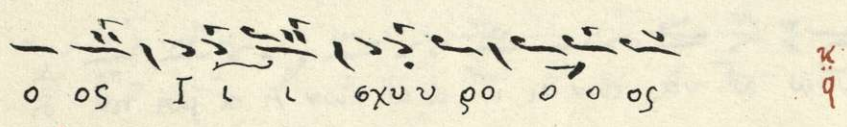 ο ος Ι ι ι σχυ υ ρο ο ο ος